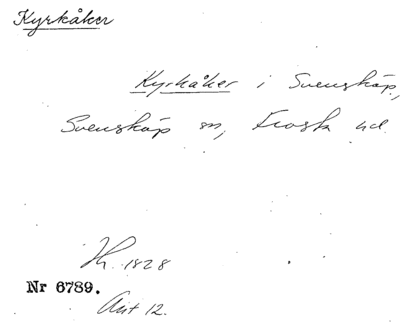 Kyrkåker
Kyrkåker i Svensköp,
Svensköp sn, Frosta hd.
1828
Nr 6789.
Akt 12.